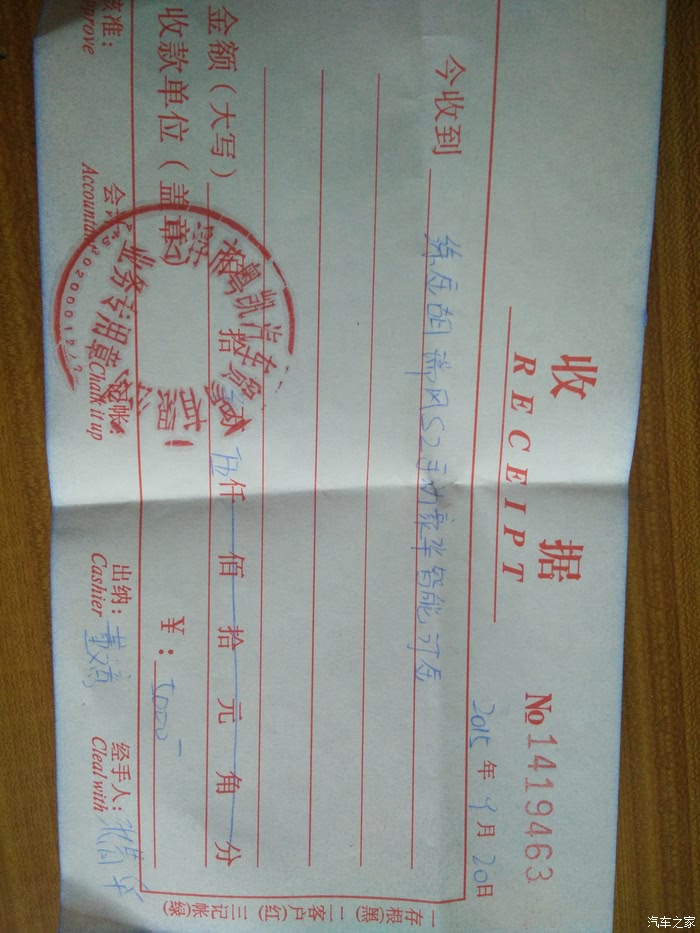 收 据
RECEIPT
No 1419463
2015 年 9 月 20 日
今收到 瑞风S2手动豪华智能订金
金额（大写） 拾 万 伍 仟 佰 拾 元 角 分
收款单位（盖章）
¥： 5000
核准： 会计 记帐： 出纳： 经手人：
Approve Accountant Chalk it up Cashier Cleal with
一存根(黑) 二客户(红) 三记帐(绿)
粤凯汽车贸
业务专用章
汽车之家